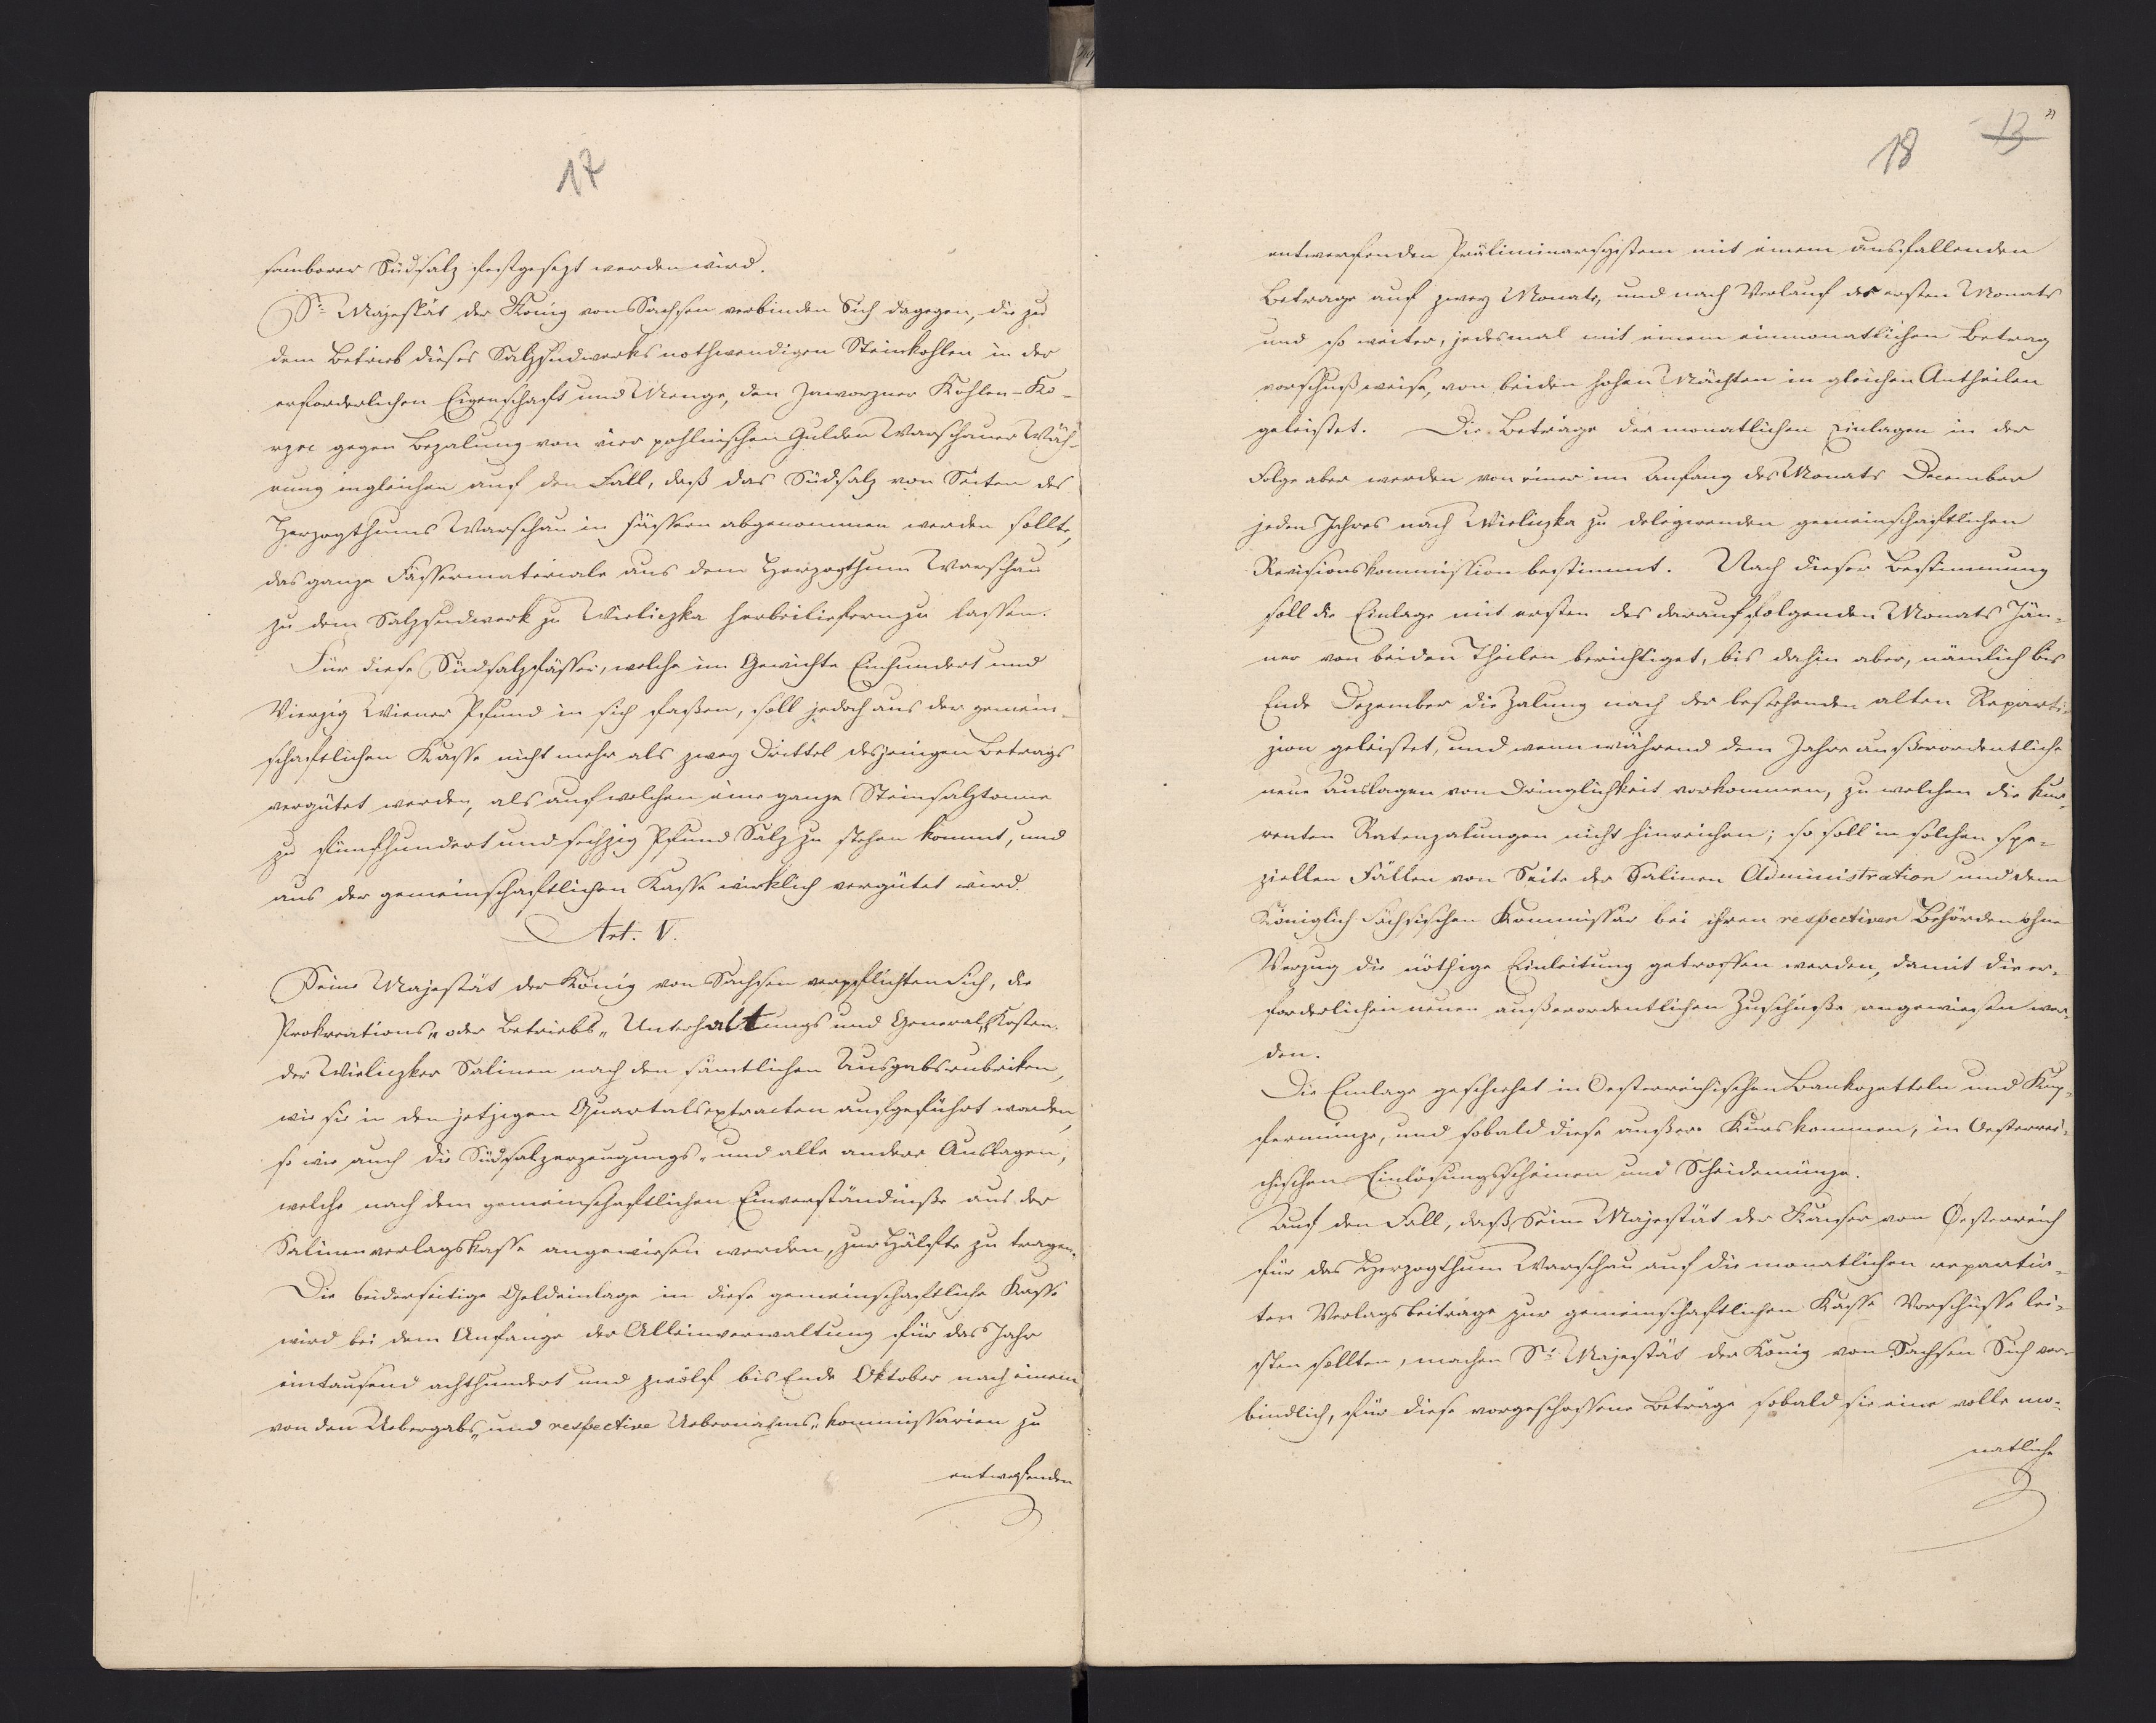 17
samborer Südsalz festgesezt werden wird.
Se Majestät der König von Sachsen verbinden Sich dagegen, die zu
dem Betrieb dieses Salzsudwerks nothwendigen Steinkohlen in der
erforderlichen Eigenschaft und Menge, den Jaworzner Kohlen-Ko-
rzec gegen Bezalung von vier pohlnischen Gulden Warschauer Wäh-
rung ingleichen auf den Fall, daß das Südsalz von Seiten des
Herzogthums Warschau in Fässern abgenommen werden sollte,
das ganze Fässermateriale aus dem Herzogthum Warschau
zu dem Salzsudwerk zu Wieliczka herbeiliefern zu lassen.
Für diese Südsalzfässer, welche im Gewichte Einhundert und
Vierzig Wiener Pfund in sich faßen, soll jedoch aus der gemein-
schaftlichen Kasse nicht mehr als zwey Drittel desjenigen Betrags
vergütet werden, als auf welchen eine ganze Steinsalztonne
zu fünfhundert und sechzig Pfund Salz zu stehen kommt, und
aus der gemeinschaftlichen Kasse wirklich vergütet wird.
Art. V.
Seine Majestät der König von Sachsen verpflichten Sich, die
Prokreations„ oder Betriebs„ Unterhaltungs und General„Kosten
der Wieliczker Salinen nach den sämtlichen Ausgabsrubriken,
wie sie in den jetzigen Quartalsextracten aufgeführt werden,
so wie auch die Südsalzerzeugungs„ und alle andere Auslagen,
welche nach dem gemeinschaftlichen Einverständniße aus der
Salinenverlagskasse angewiesen werden, zur Hälfte zu tragen.
Die beiderseitige Geldeinlage in diese gemeinschaftliche Kasse
wird bei dem Anfange der Alleinverwaltung für das Jahr
eintausend achthundert und zwölf bis Ende Oktober nach einem
von den Uebergabs„ und respective Uebernahms„kommissarien zu
entwerfenden
18 13
entwerfenden Präliminarsystem mit einem ausfallenden
Betrage auf zwey Monate, und nach Verlauf des ersten Monats
und so weiter, jedesmal mit einem einmonatlichen Betrag
vorschußweise, von beiden hohen Mächten in gleichen Antheilen
geleistet. Die Beträge der monatlichen Einlagen in der
Folge aber werden von einer im Anfang des Monats December
jeden Jahres nach Wieliczka zu delegirenden gemeinschaftlichen
Revisionskommission bestimmt. Nach dieser Bestimmung
soll die Einlage mit ersten des darauf folgenden Monats Jän-
ner von beiden Theilen berichtiget, bis dahin aber, nämlich bis
Ende Dezember die Zalung nach der bestehenden alten Reparti-
zion geleistet, und wenn während dem Jahre außerordentliche
neue Auslagen von Dringlichkeit vorkommen, zu welchen die kur-
renten Ratenzalungen nicht hinreichen; so soll in solchen spe-
ziellen Fällen von Seite der Salinen Administration und dem
Königlich Sächsischen Kommissär bei ihren respectiven Behörden ohne
Verzug die nöthige Einleitung getroffen werden, damit die er-
forderlichen neuen außerordentlichen Zuschüße angewiesen wer-
den.
Die Einlage geschiehet in Oesterreichischen Bankozetteln und Kup-
fermünze, und sobald diese außer Kurs kommen, in Oesterrei-
chischen Einlösungsscheinen und Scheidemünze.
Auf den Fall, daß Seine Majestät der Kaiser von Oesterreich
für das Herzogthum Warschau auf die monatlichen repartir-
ten Verlagsbeiträge zur gemeinschaftlichen Kasse Vorschüsse lei-
sten sollten, machen Se Majestät der König von Sachsen Sich ver-
bindlich, für diese vorgeschossene Beträge sobald sie eine volle mo-
natliche